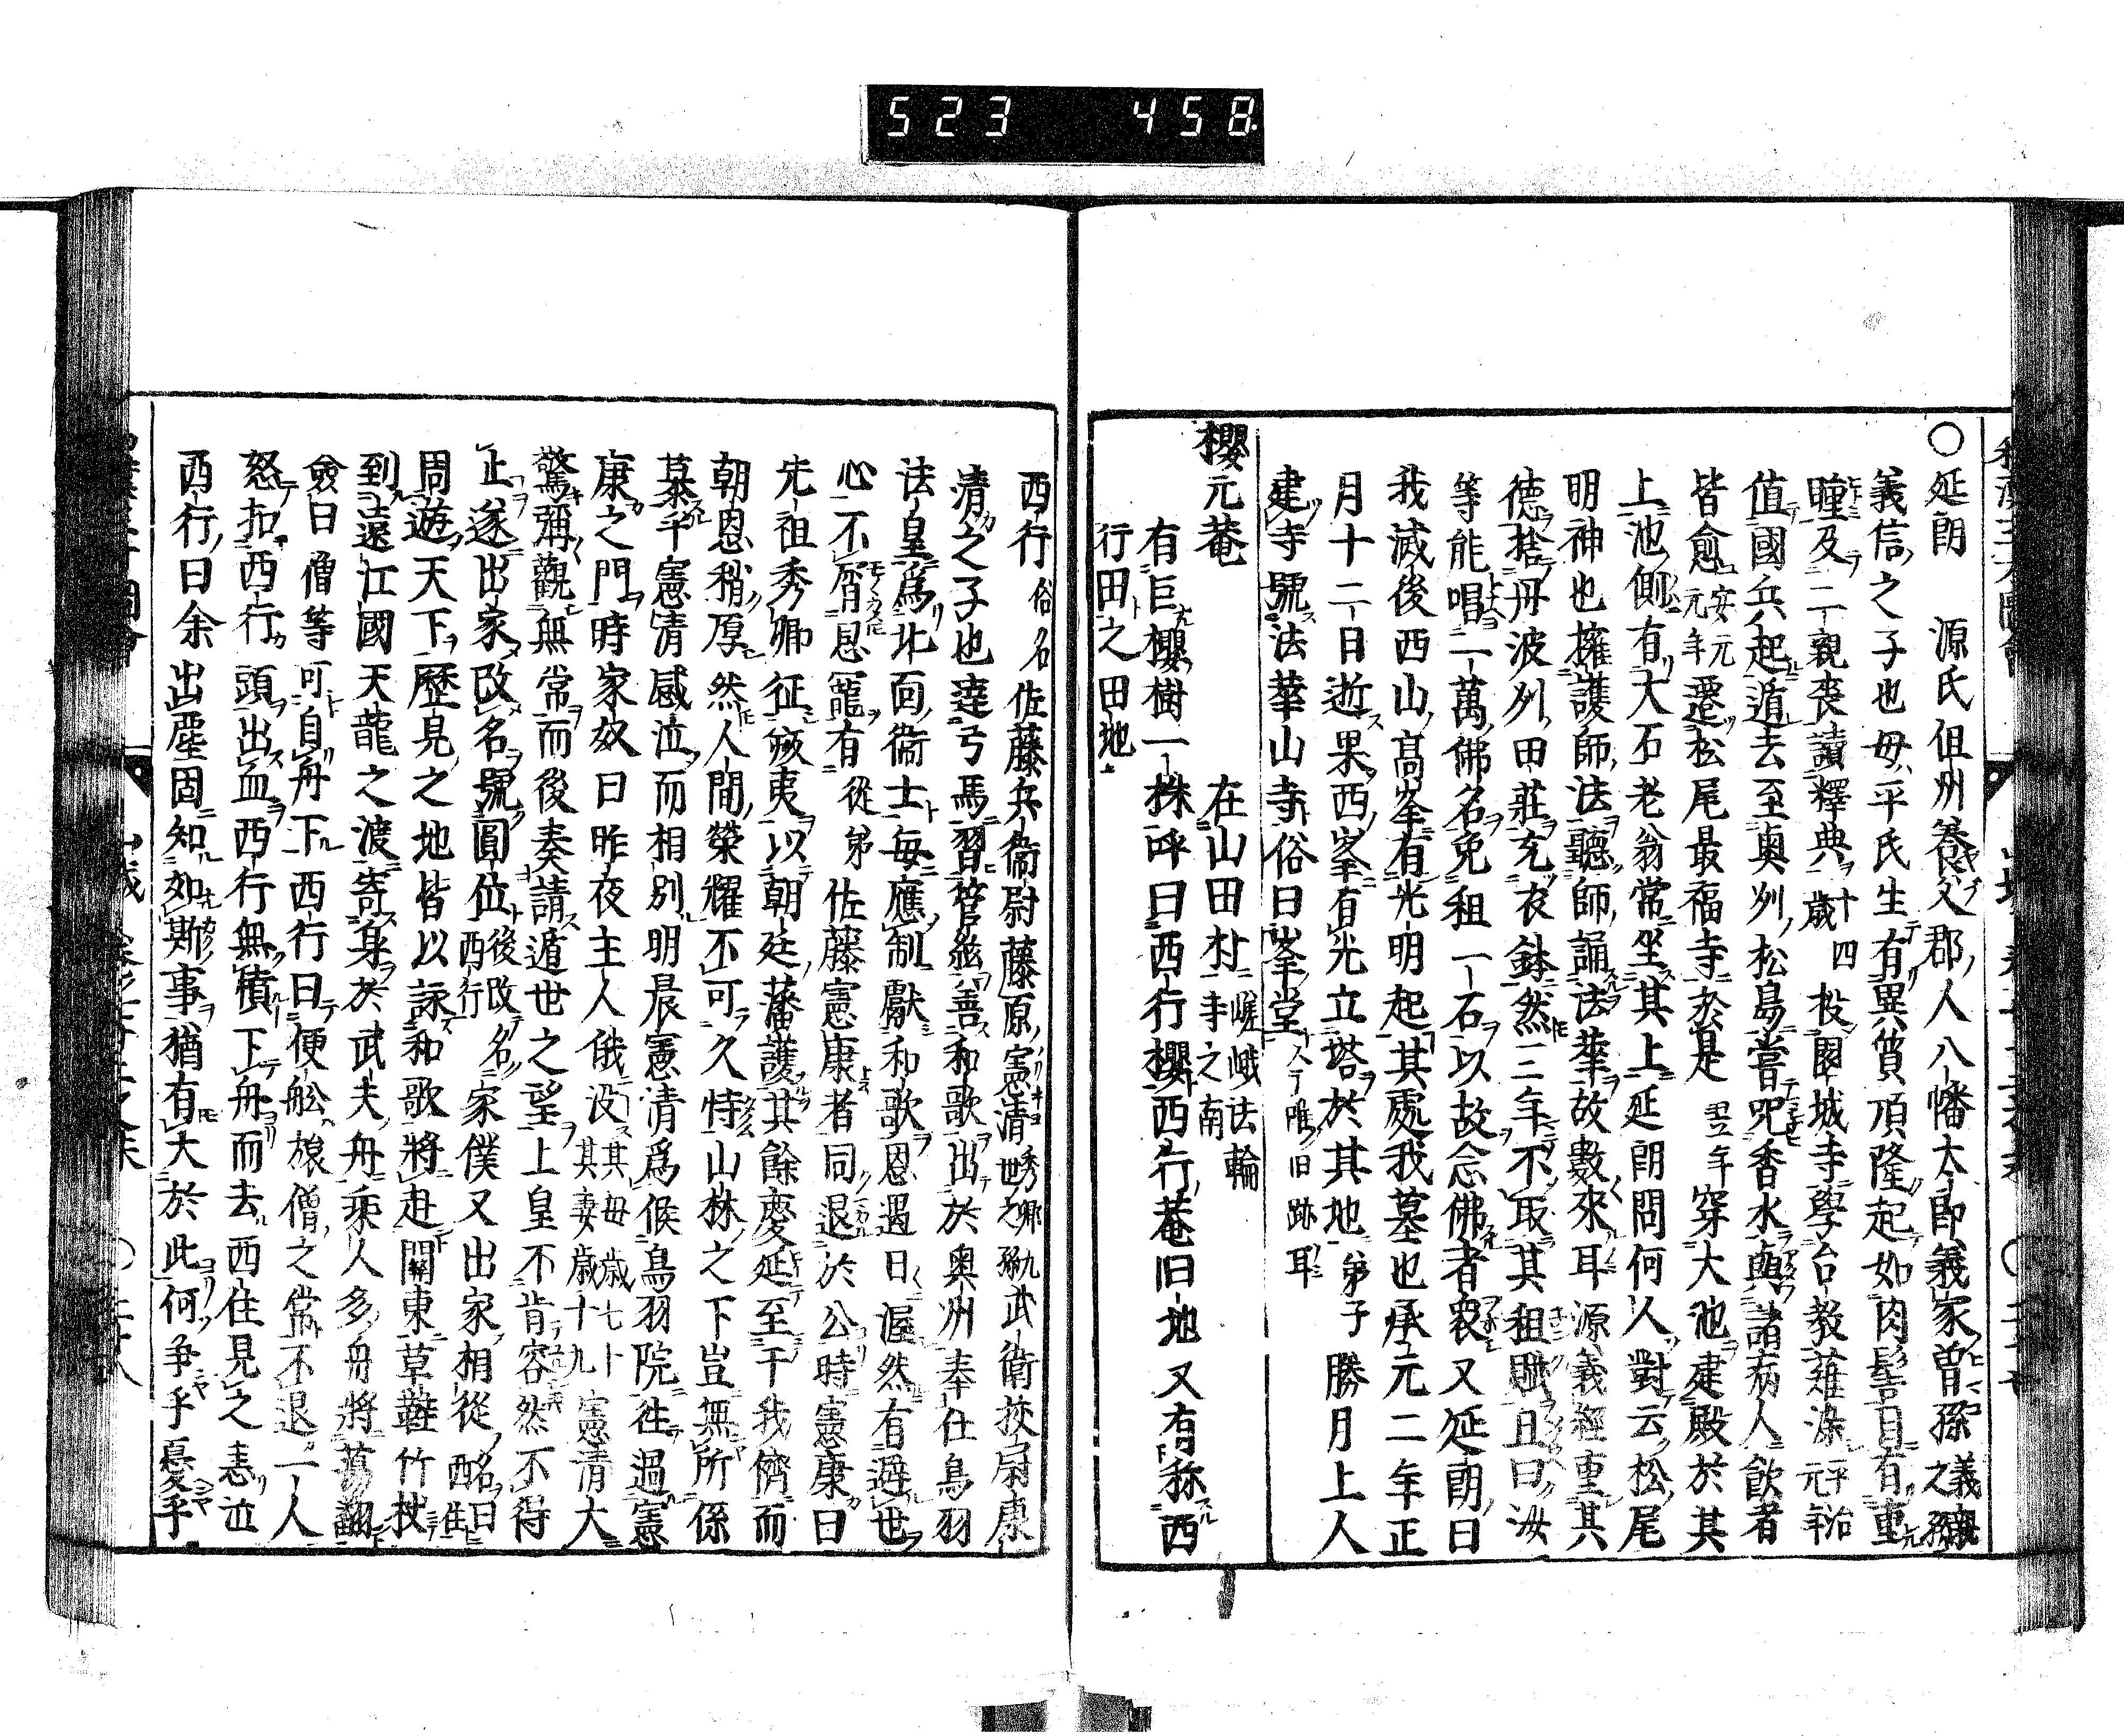 523 458
○延朗 源氏但州養父郡人八幡太郎義家曽孫義信之子也母平氏生有異質頂隆起如肉髻目有重
瞳及二親喪讀釋典十四歳投園城寺學台教薙染平治元年
值國兵起遁去至奥州松島嘗呪香水與諸病人飮者
皆愈安元元年遷松尾最福寺於是翌年穿大池建殿於其
上池側有大石老翁常坐其上延朗問何人對云松尾
明神也擁護師法聽師誦法華故數來耳源義經重其
徳捨丹波州田莊充衣鉢然三年不取其租賦且曰汝
等能唱一萬佛名免租一石以故念佛者衆又延朗曰
我滅後西山髙峯有光明起其處我墓也承元二年正
月十二日逝果西峯有光立塔於其地弟子勝月上人
建寺號法華山寺俗曰峯堂今唯旧跡耳
櫻元菴 在山田村嵯峨法輪寺之南
有巨櫻樹一株呼曰西行櫻西行菴旧地又有稱西
行田之田地
西行 俗名佐藤兵衞尉藤原憲清秀郷九世之孫武衛挍尉康
清之子也達弓馬習管絃善和歌出於奥州奉仕鳥羽
法皇爲北面衞士毎應制獻和歌恩遇日渥然有避世
心不屑恩寵有從弟佐藤憲康者同退於公時憲康曰
先祖秀郷征殄夷以朝廷藩護其餘慶延至于我儕而
朝恩稍厚然人間榮耀不可久恃山林之下豈無所係
慕乎憲清感泣而相別明晨憲清爲候鳥羽院往過憲
康之門時家奴曰昨夜主人俄没其母歳七十其妻歳十九憲清大
驚彌觀無常而後奏請遁世之望上皇不肯容然不得
止遂出家改名號圓位後改名西行家僕又出家相從名曰西住
周遊天下歷見之地皆以詠和歌將赴關東草鞋竹杖
到遠江國天龍之渡寄身於武夫舟乘人多舟將蕩翻
僉曰僧等可自舟下西行曰便舩旅僧之常不退一人
怒扣西行頭出血西行無憤下舟而去西住見之恚泣
西行曰余出塵固知如斯事猶有大於此何争乎憂乎